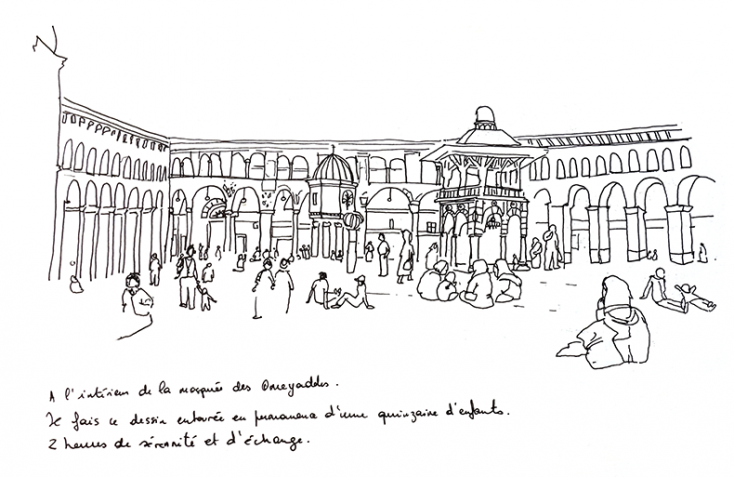 A l'intérieur de la mosquée des Omeyaddes.
Je fais ce dessin entourée en permanence d'une quinzaine d'enfants.
2 heures de sérénité et d'échange.